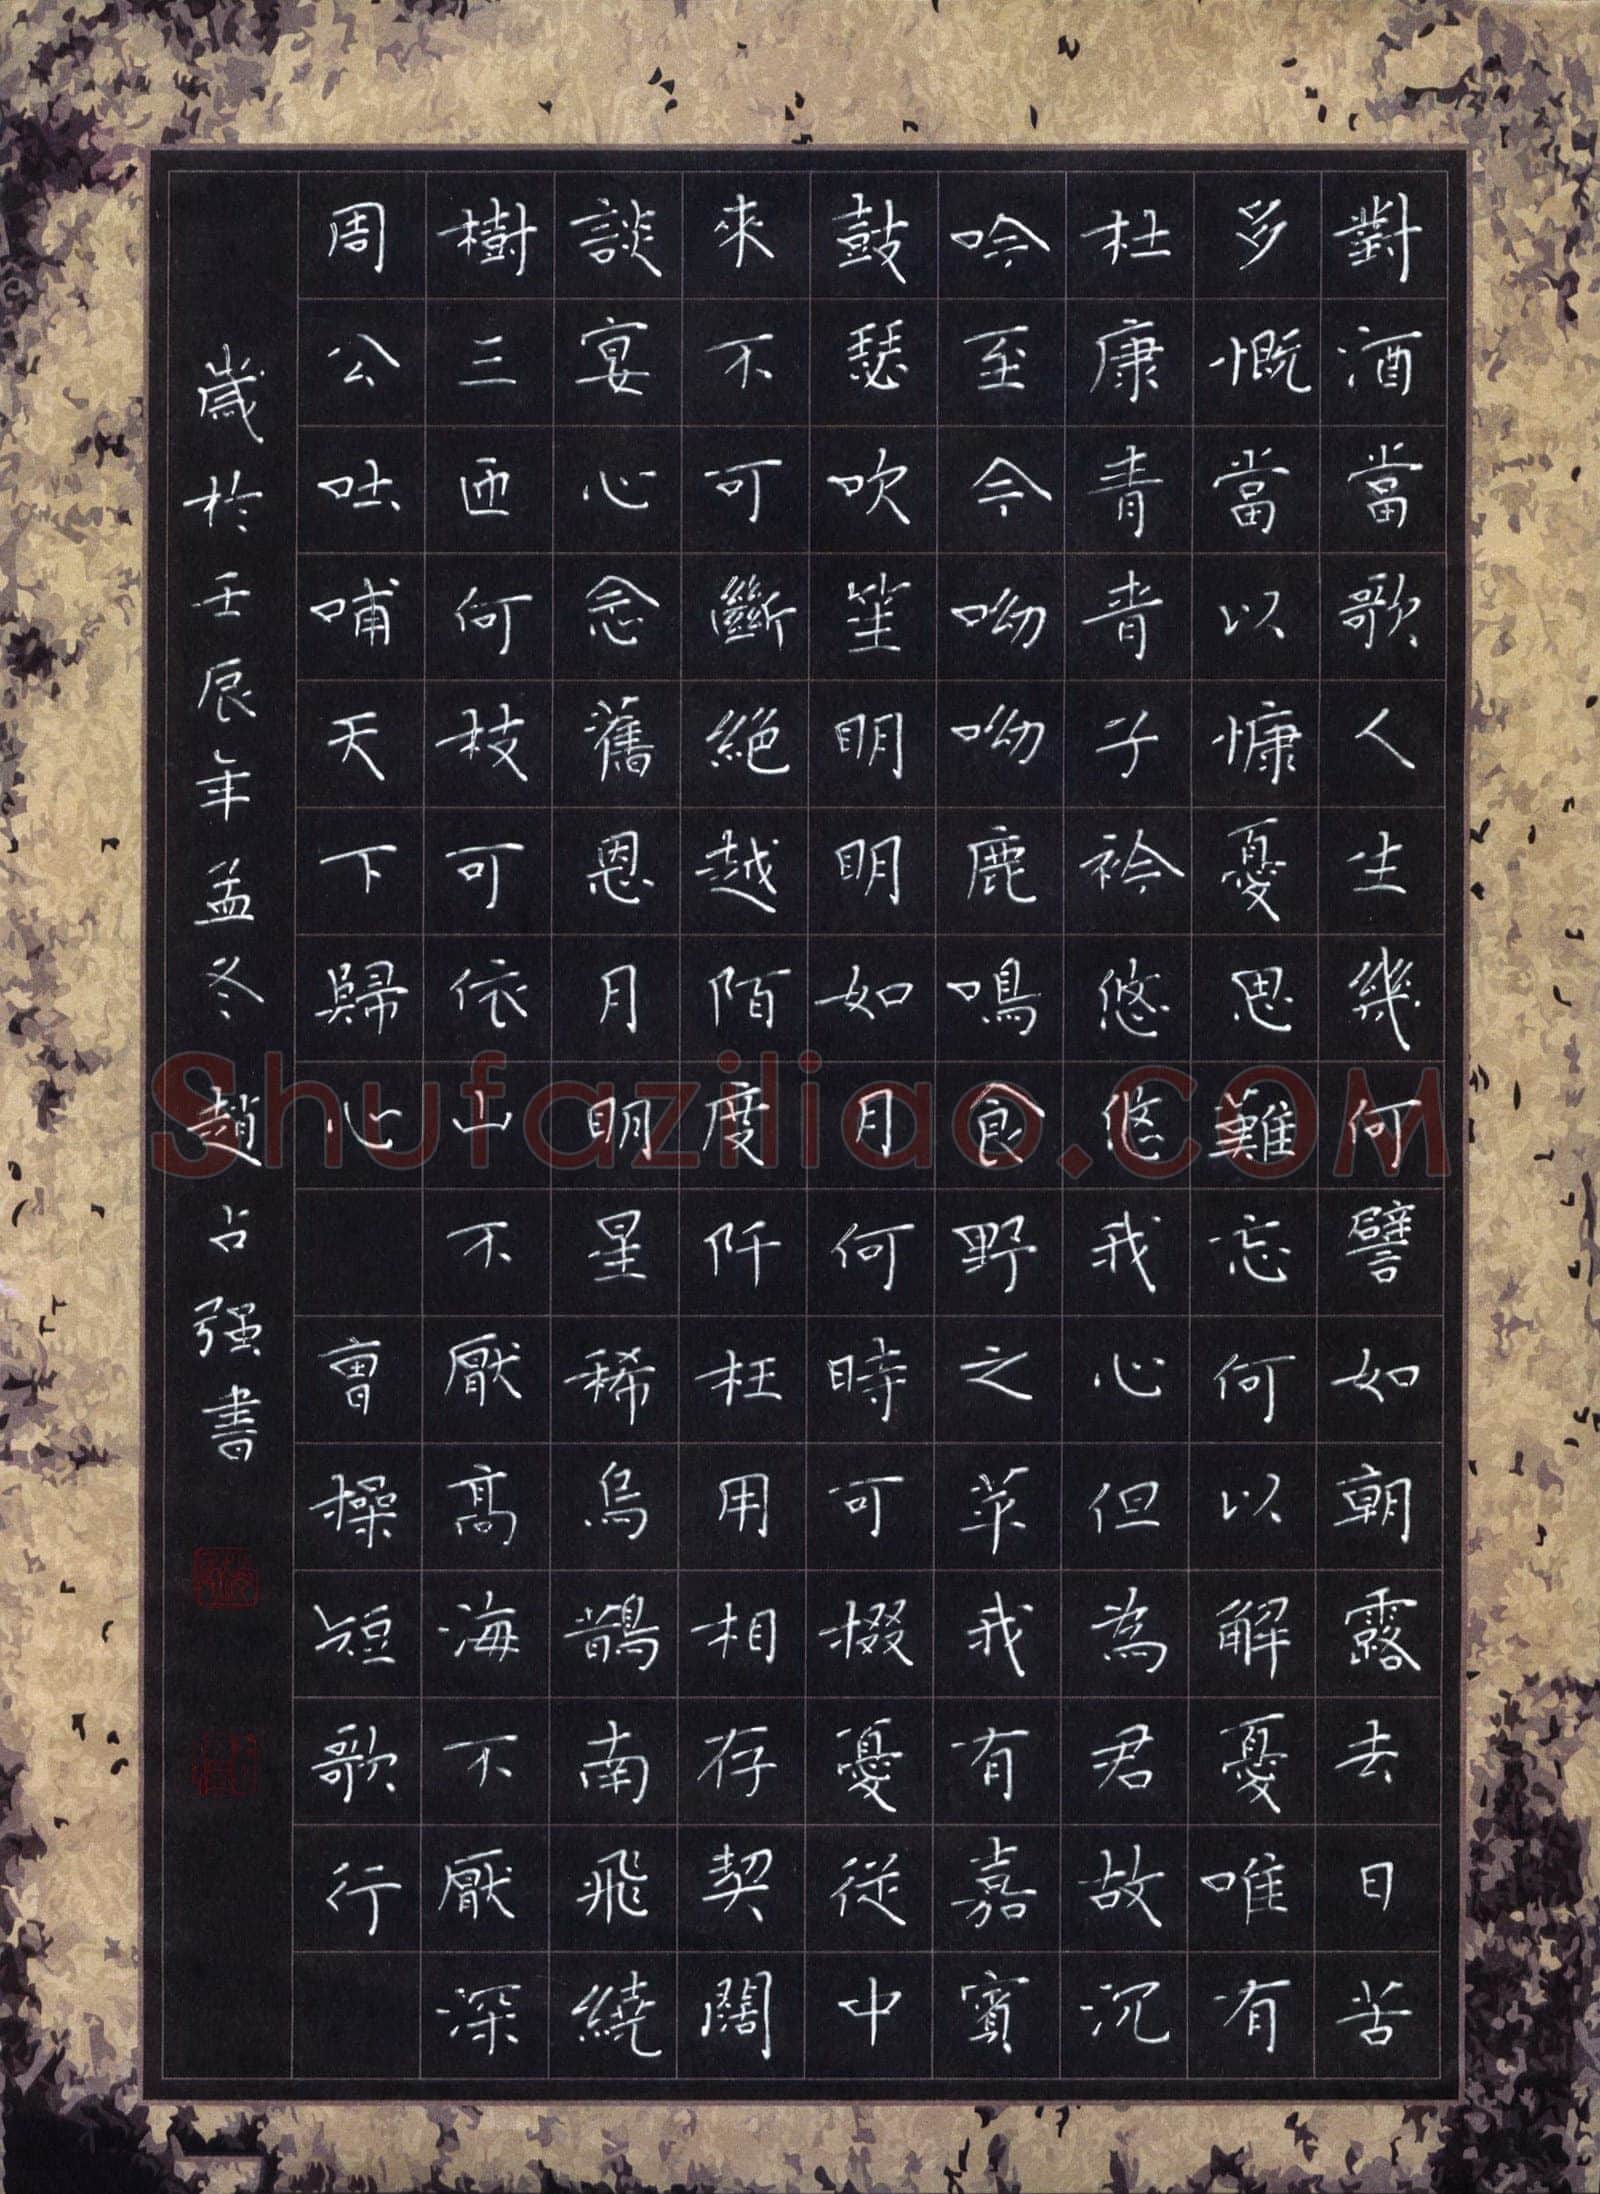 對酒當歌人生幾何譬如朝露去日苦
多慨當以慷憂思難忘何以解憂唯有
杜康青青子衿悠悠我心但為君故沉
吟至今呦呦鹿鳴食野之苹我有嘉賓
鼓瑟吹笙明明如月何時可掇憂從中
來不可斷絕越陌度阡枉用相存契闊
談宴心念舊恩月明星稀烏鵲南飛繞
樹三匝何枝可依山不厭高海不厭深
周公吐哺天下歸心 曹操短歌行
歲於壬辰年孟冬 趙占强書
Shufaziliao.COM